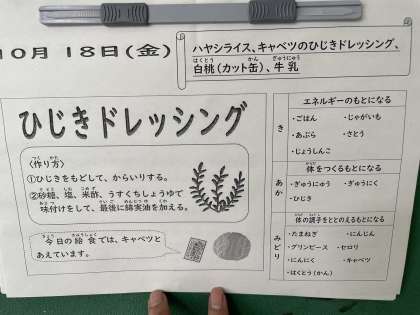 10月 18日(金)
ハヤシライス、キャベツのひじきドレッシング、
白桃(カット缶)、牛乳
はくとう かん ぎゅうにゅう
ひじきドレッシング
つく かた
〈作り方〉
①ひじきをもどして、からいりする。
さとう しお こめず
②砂糖、塩、米酢、うすくちしょうゆで
味付けをして、最後に綿実油を加える。
きょう きゅうしょく
今日の給食では、キャベツと
あえています。
き
エネルギーのもとになる
・ごはん ・じゃがいも
・あぶら ・さとう
・じょうしんこ
あか
体をつくるもとになる
・ぎゅうにゅう ・ぎゅうにく
・ひじき
みどり
体の調子をととのえるもとになる
・たまねぎ ・にんじん
・グリンピース ・セロリ
・にんにく ・キャベツ
・はくとう(かん)